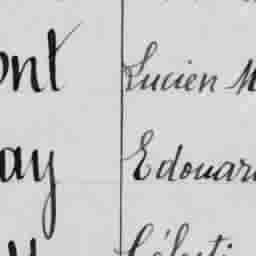 ont Lucien M
ay Edouar
Célesti